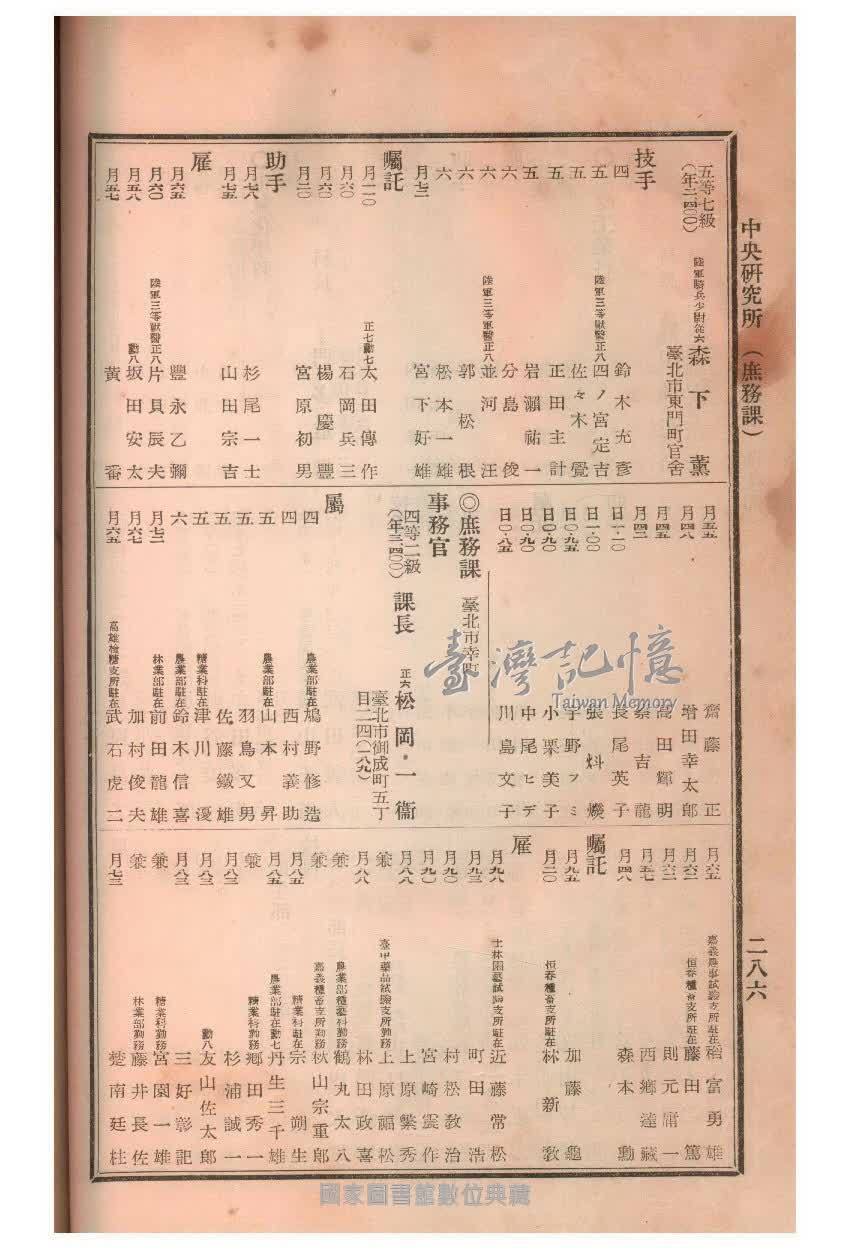 中央硏究所（庶務課）
二八六
五等七級
（年二、四〇〇）
陸軍騎兵少尉從六 森下薰
臺北市東門町官舍
技手
四 鈴木充彥
五 陸軍三等獸醫正八 四ノ宮定吉
五 佐々木覺
五 正田主計
五 岩瀨祐一
六 分島俊
六 陸軍三等軍醫正八 並河汪
六 郭松根
六 松本一雄
月七二 宮下好雄
囑託
月一一〇 正七勳七 太田傳作
月六〇 石岡兵三
月六〇 楊慶豐
月二〇 宮原初男
助手
月七八 杉尾一士
月七五 山田宗吉
雇
月六五 豐永乙彌
月六〇 陸軍三等獸醫正八 片貝辰夫
月五八 勳八 坂田安太
月五七 黃番
月五五 齋藤正
月四八 增田幸太郎
月四五 高田輝明
月四二 蔡吉龍
日一・一〇 長尾英子
日一・〇〇 張
日〇・九五 宇野フミ
日〇・九〇 小栗美子
日〇・九〇 中尾ヒデ
日〇・八五 川島文子
◎庶務課 臺北市幸町
事務官
四等二級
（年三、四〇〇）
課長 正六 松岡一衞
臺北市御成町五丁
目二四（二八九）
屬
四 農業部駐在 鳩野修造
四 西村義助
五 農業部駐在 山本昇
五 羽鳥又男
五 佐藤鐵雄
五 糖業科駐在 津川淳
六 農業部駐在 鈴木信喜
月七二 林業部駐在 前田龍雄
月六七 加村俊夫
月六五 高雄檢糖支所駐在 武石虎二
月六五 嘉義農事試驗支所駐在 稻富勇雄
月六二 恒春種畜支所駐在 藤田篤
月六二 則元庸一
月五七 西鄉達藏
月四八 森本勳
囑託
月九五 加藤龜
月二〇 恒春種畜支所駐在 林新敎
雇
月九八 士林園藝試驗支所駐在 近藤常松
月九三 町田浩
月九〇 村松敎治
月九〇 宮崎震作
月八八 上原繁秀
兼 臺中藥品試驗支所勤務 上原福松
月八八 林田政喜
兼 農業部種藝科勤務 鶴丸太八
兼 嘉義種畜支所勤務 秋山宗重郎
月八五 糖業科駐在 宗朔生
月八五 農業部駐在勳七 丹生三千雄
兼 糖業科勤務 鄉田秀一
月八三 杉浦誠一
月八三 勳八 友山佐太郎
月八三 三好彰記
兼 糖業科勤務 宮園一雄
兼 林業部勤務 藤井長佐
月七三 楚南廷桂
臺灣記憶
Taiwan Memory
國家圖書館數位典藏